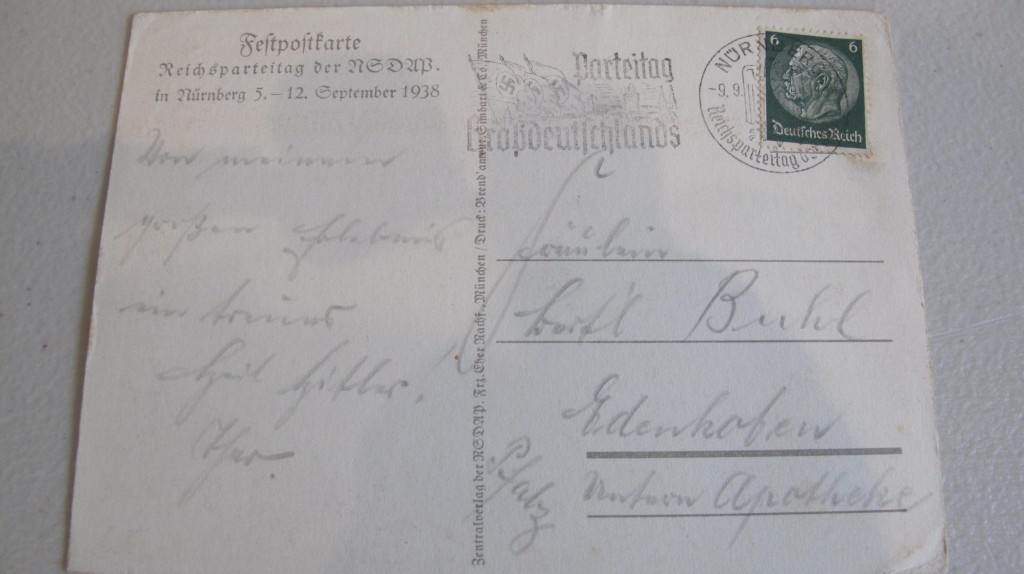 Festpostkarte
Reichsparteitag der NSDAP.
in Nürnberg 5.–12. September 1938
Von meinem
großen Erlebnis
ein treues
Heil Hitler!
Parteitag
Großdeutschlands
NÜRNBERG
-9.9.
Reichsparteitag d.
6 6
Deutsches Reich
Zentralverlag der NSDAP. Frz. Eher Nachf., München / Druck: Brend'amour, Simhart & Co. München
Fräulein
Buhl
Edenkoben
Pfalz
Untern Apotheke